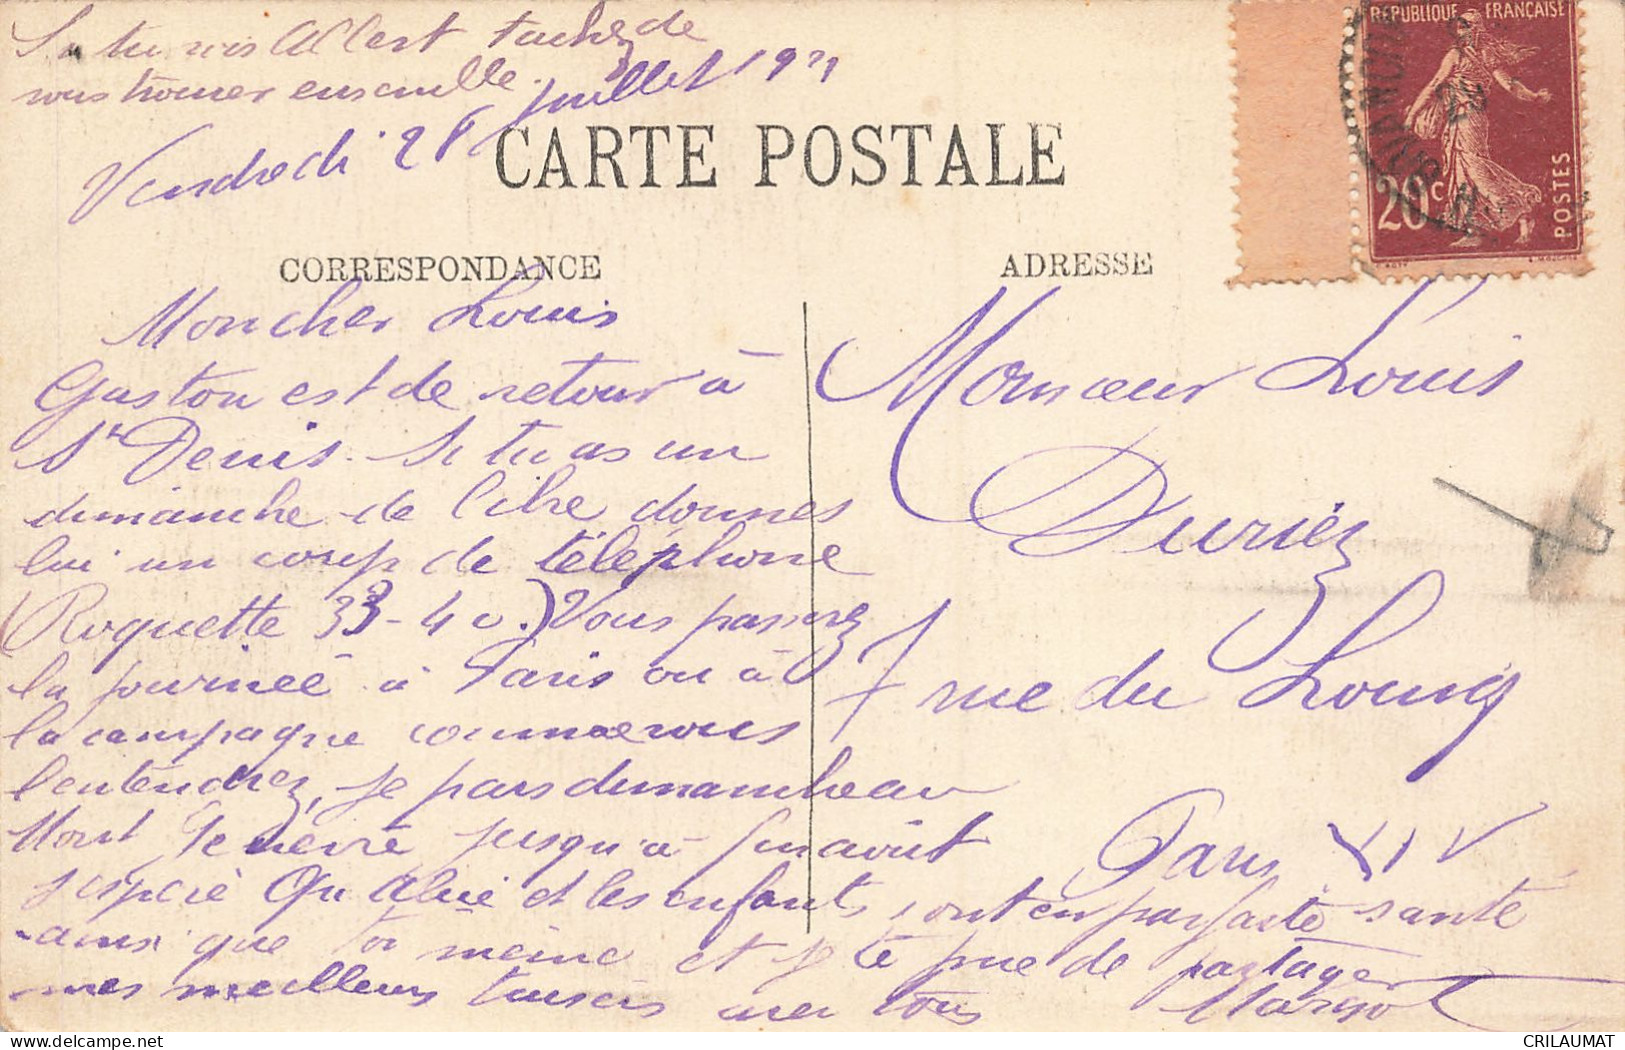 Si tu vois Albert tachez de
vous trouver ensemble.
Vendredi 28 juillet 19
CARTE POSTALE
REPUBLIQUE FRANÇAISE
20c
POSTES
CORRESPONDANCE
ADRESSE
Mon cher Louis
Gaston est de retour à
St Denis. Si tu as un
dimanche de libre donnes
lui un coup de téléphone
(Roquette 33-40.) Vous passerez
la journée à Paris ou à
la campagne comme vous
l'entendrez, je pars dimanche au
Mont Genèvre jusqu'à fin août
j'espère qu' et les enfants sont en parfaite santé
ainsi que toi même et je te prie de partager
mes meilleurs baisers avec tous Margot
Monsieur Louis
Duriez
7 rue du Loing
Paris XIV
delcampe.net
CRILAUMAT